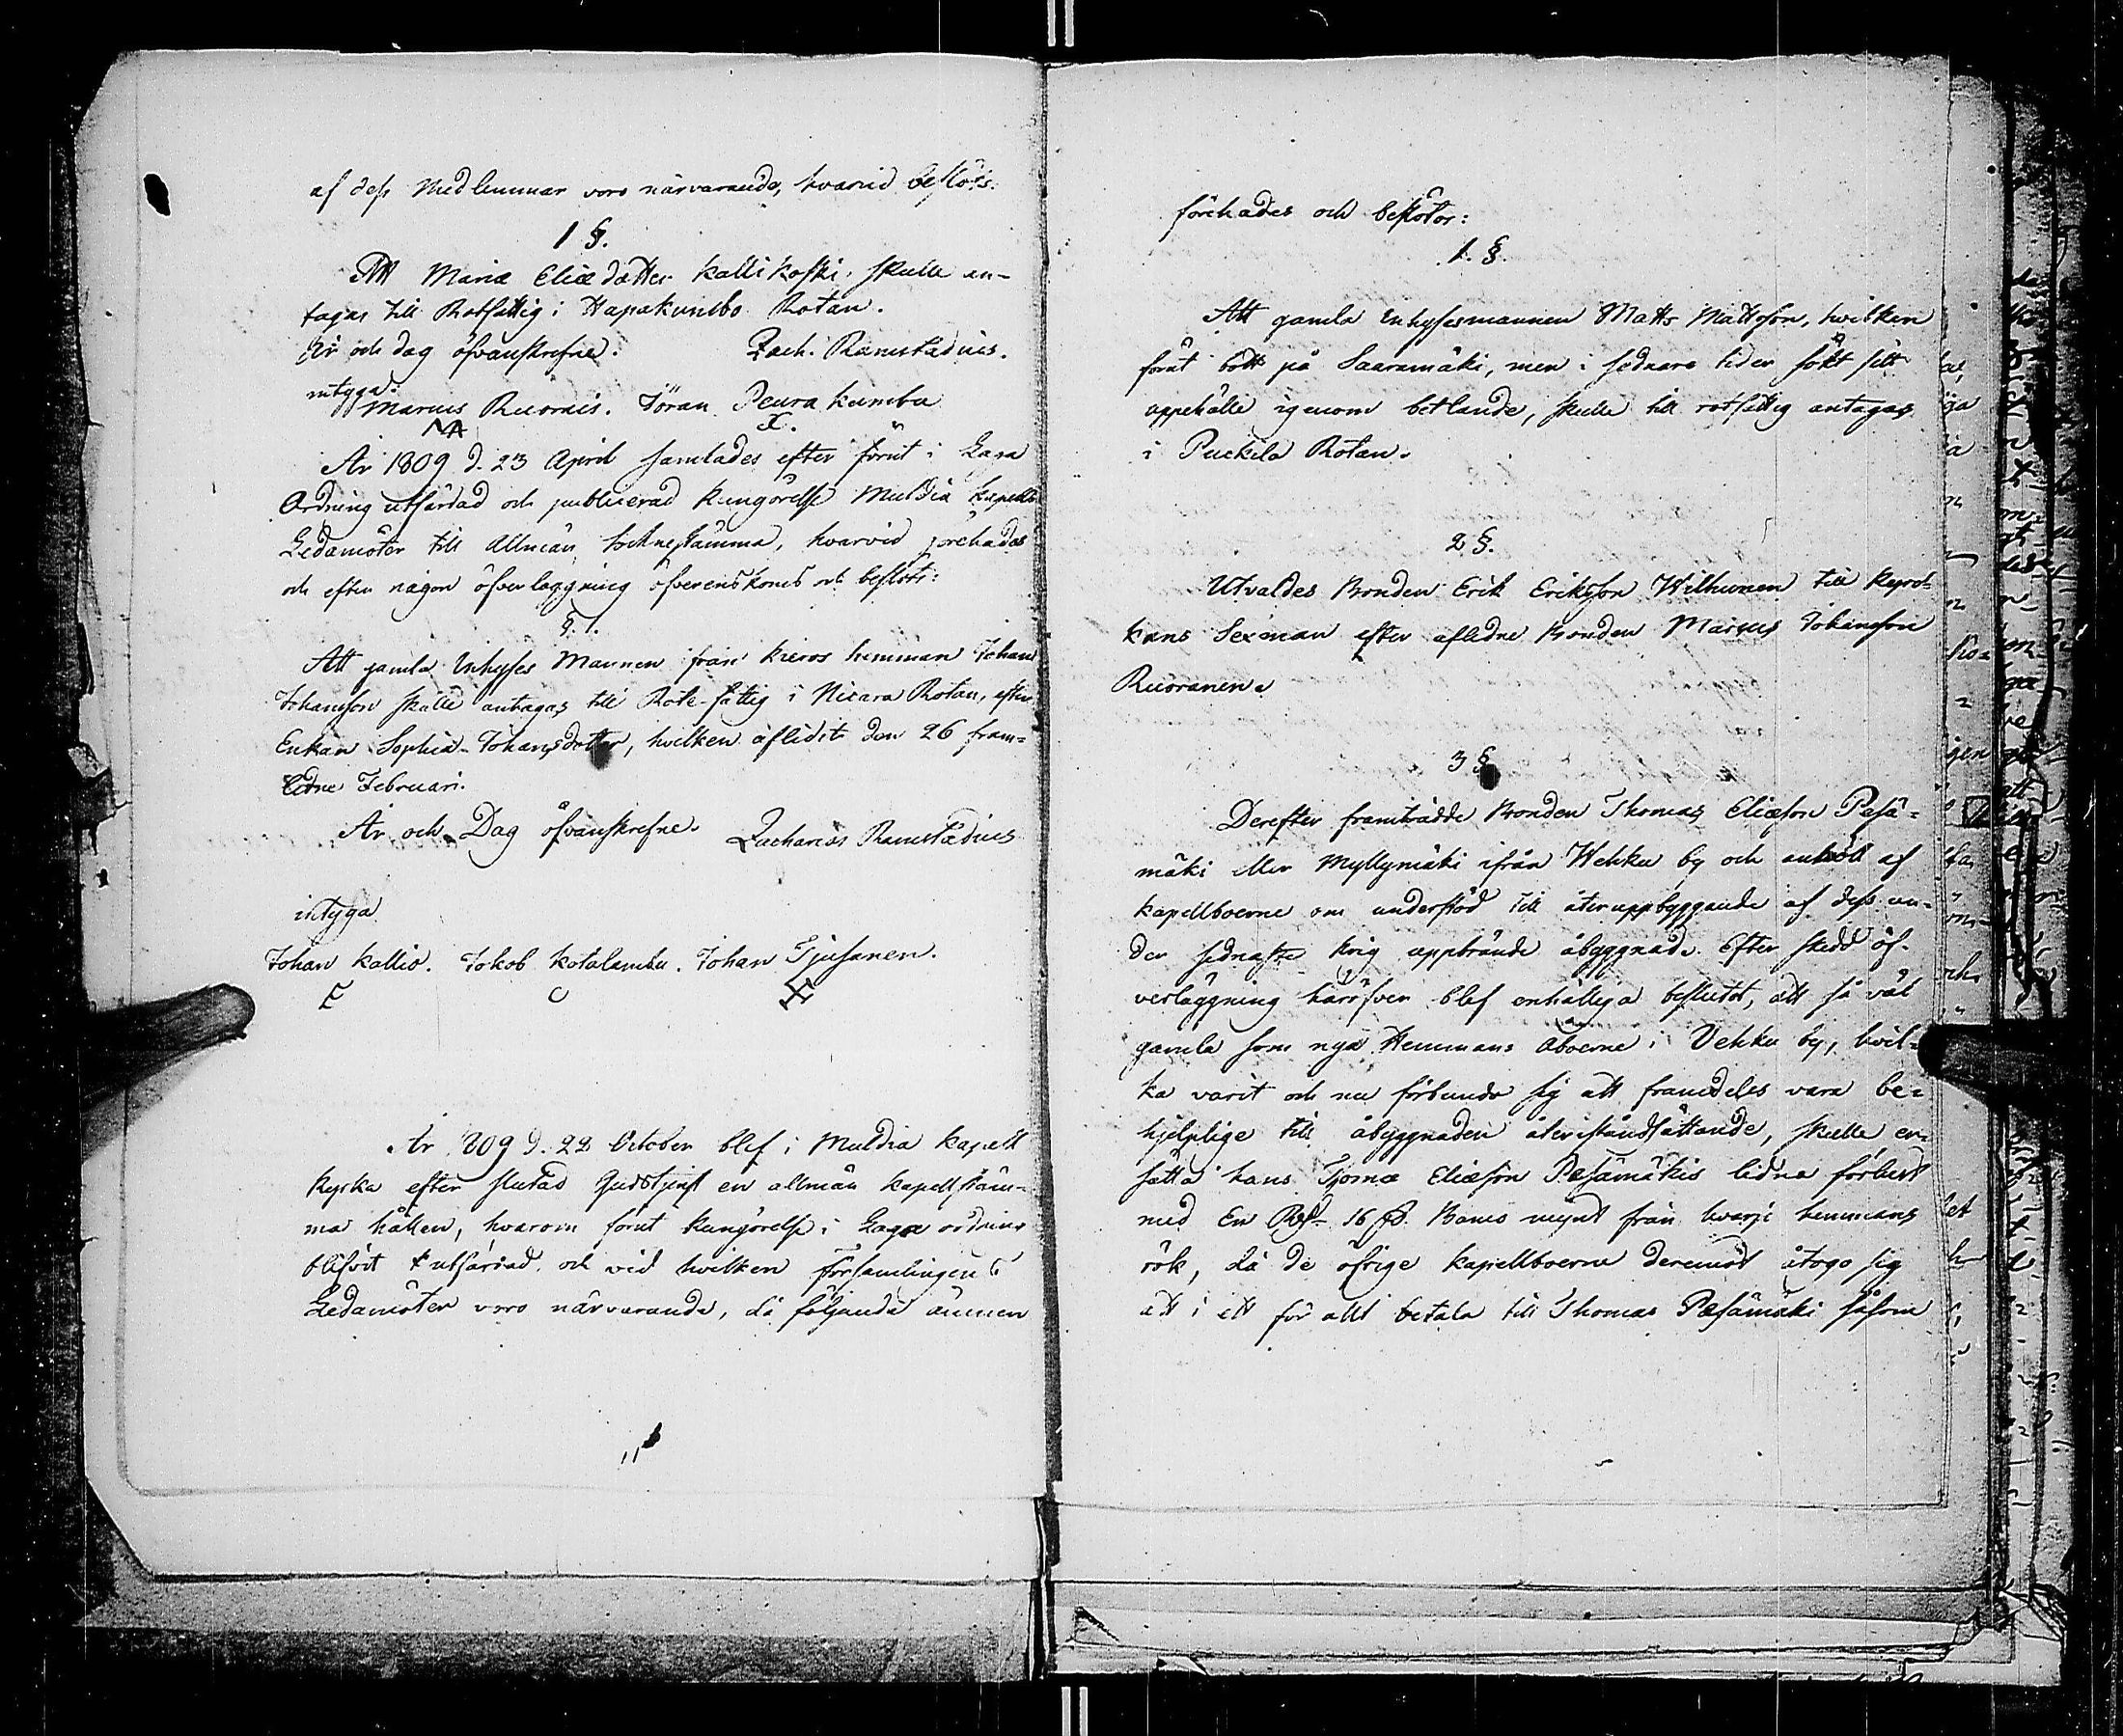 af dess Medlemmar voro närvarande, hvarvid beslöts:
1 §.
Att Maria Eliædotter Kallikoski, skulle an-
tagas till Rotfattig i Hapakumbo Rotan.
År och dag öfvanskrefne. Zach. Ramstadius.
intyga:
Marcus Ruornis. Jöran Peurakumbu
År 1809 d. 23 April samlades efter förut i Laga
Ordning utfärdad och publicerad kungörelse Muldia kapells
Ledamöter till Allmän Sockne stämma, hvarvid förehades
och efter någon öfverläggning öfverenskoms och beslöts:
§. 1.
Att gamla Inhyses Mannen från Kieros hemman Johan
Johansson skulle antagas till Rote-fattig i Nisara Rotan, efter
Enkan Sophia Johansdotter, hvilken aflidit den 26 fram-
lidne Februari.
År och Dag öfvanskrefne. Zacharias Ramstadius
intyga
Johan Kallio. Jakob Kotalambu. Johan Tjusanen.
År 1809 d. 22 October blef i Muldia kapell
kyrka efter slutad Gudstjenst en allmän kapellstäm-
ma hållen, hvarom förut kungörelse i Laga ordning
blifvit utfärdad och vid hvilken församlingens
Ledamöter voro närvarande, då följande ämnen
förehades och beslötos:
1. §.
Att gamla Inhysesmannen Matts Mattsson, hvilken
förut bott på Saaramäki, men i sednare tider sökt sitt
uppehälle igenom betlande, skulle till rotfattig antagas
i Puckila Rotan.
2 §.
Utvaldes Bonden Erik Eriksson Wilhunen till Keprol-
kans Sexman efter aflidne Bonden Marcus Johansson
Ruoranen.
3 §
Derefter framträdde Bonden Thomas Eliæson Pesä-
mäki eller Myllymäki ifrån Wehku by och anhöll af
kapellboerne om understöd till återuppbyggande af dess un-
der sednaste krig uppbrände åbyggnad. Efter skedd öf-
verläggning häröfver blef enhälliga beslutet, att så väl
gamla som nya Hemmans åboerne i Vehku by, hvil-
ka varit och nu förbundo sig att framdeles vara be-
hjelplige till åbyggnadens återiståndsättande, skulle er-
sätta hans Thomæ Eliæson Pæsämäkis lidna förlust
med En Rdr 16 sk. Banco mynt från hvarje hemmans
rök, då de öfrige kapellboerne deremot åtogo sig
att i ett för allt betala till Thomas Pæsämäki såsom